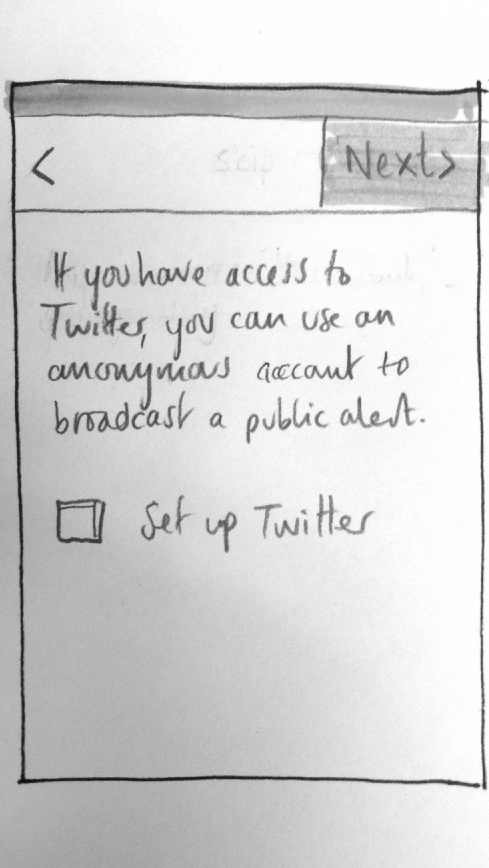 < Next>
If you have access to
Twitter, you can use an
anonymous account to
broadcast a public alert.
Set up Twitter